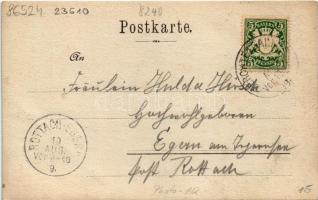 86524 23610 8240
Postkarte.
An
Fräulein Hulda Hirsch
Hochwohlgeboren
Egern am Tegernsee
Post Rottach
ROTTACH-EGERN
10
AUG.
9.
BAYERN
5 5